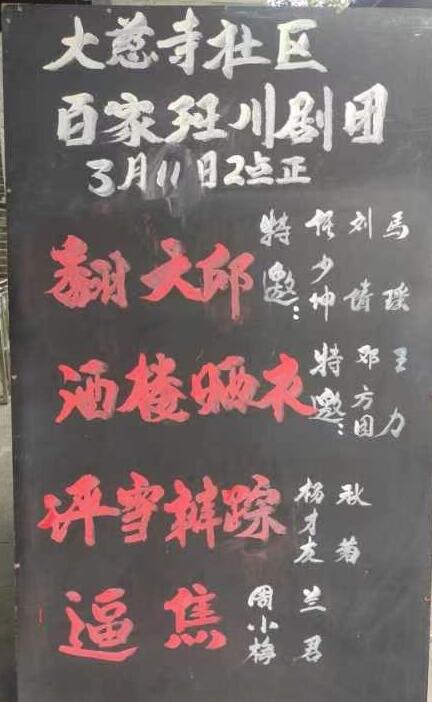 大慈寺社区
百家班川剧团
3月11日2点正
翻大邱 特邀: 少坤 刘 马
酒楼晒衣 特邀: 邓方园 王力
评雪辨踪 杨才友 秋菊
逼焦 周小梅 兰君